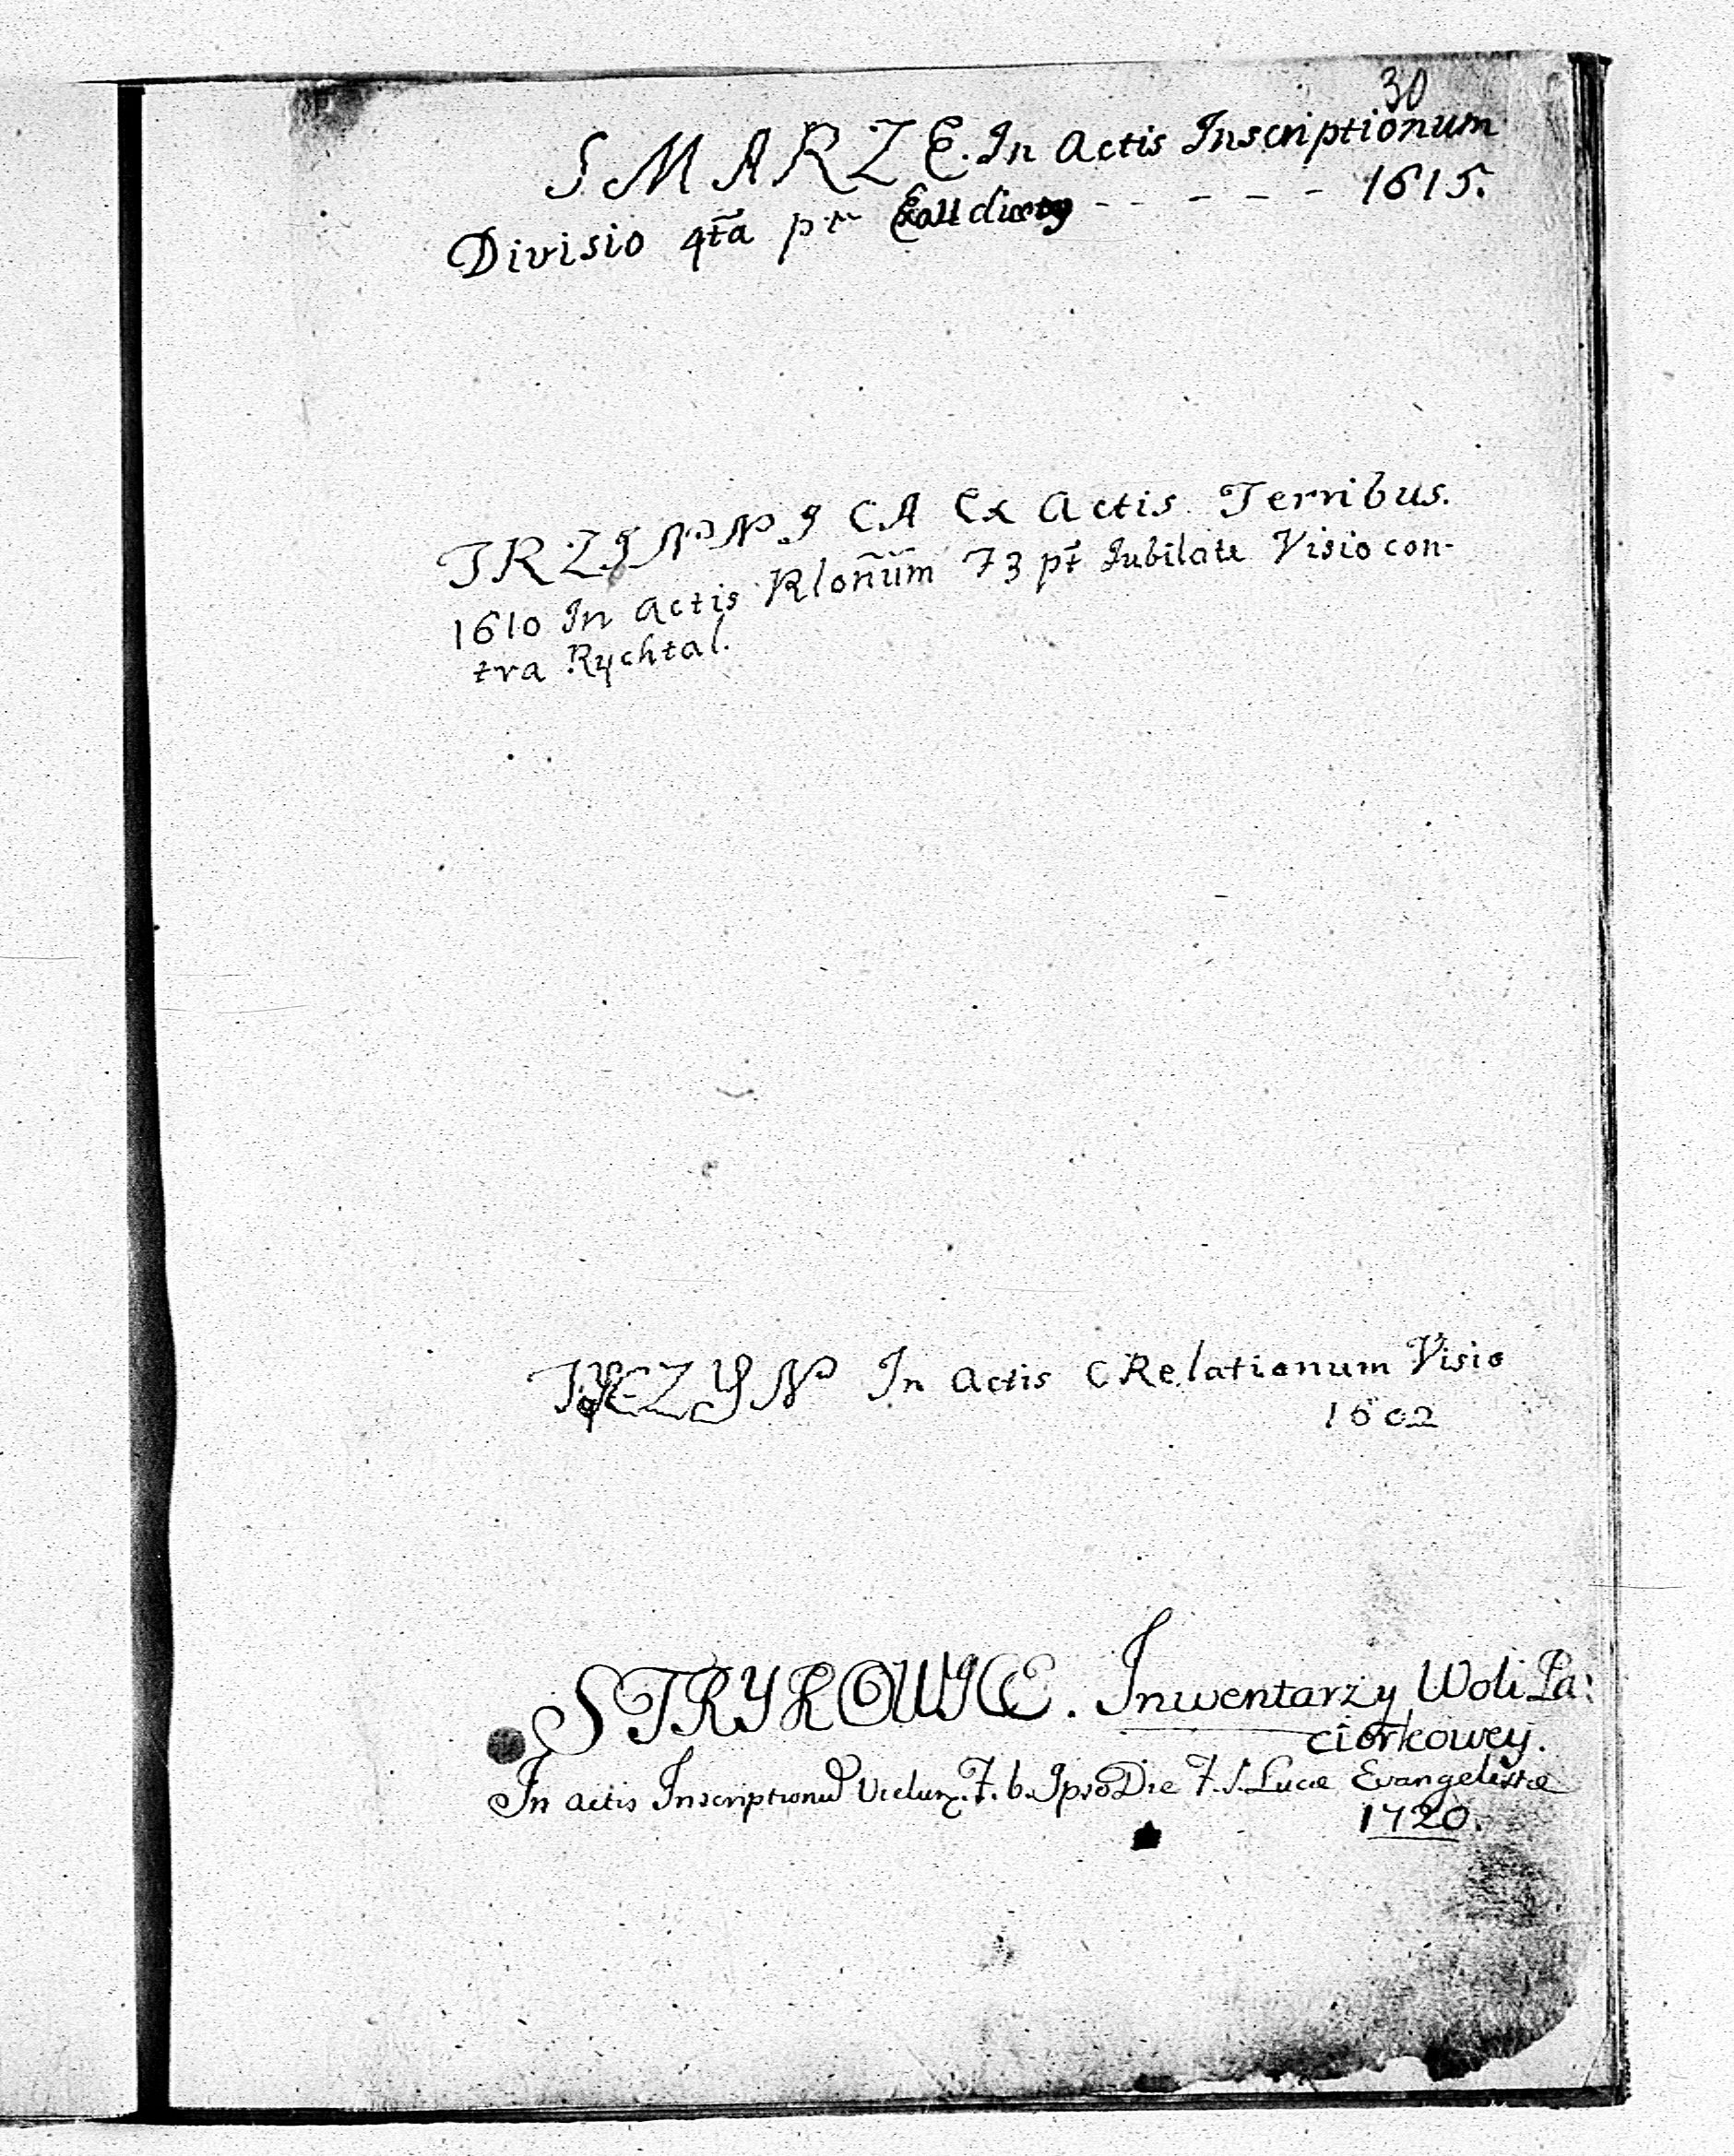 30
SMARZE. In Actis Inscriptionum
Divisio 4t̃a pt̃ - - - - - 1615.
TRZINNICA Ex Actis Terribus.
1610 In Actis Rlonũm 73 pt̃ Jubilate Visio con-
tra Rychtal.
In Actis CRelationum Visio
1602
STRYKOWICE. Inwentarz y Woli Pa:
ciorkowey.
In actis Inscriptionũ Vielun. F. 6. Ipso Die F. S. Lucæ Evangelistæ
1720.